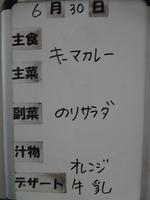 6月30日
主食
キーマカレー
主菜
副菜 のりサラダ
汁物
オレンジ
デザート 牛乳